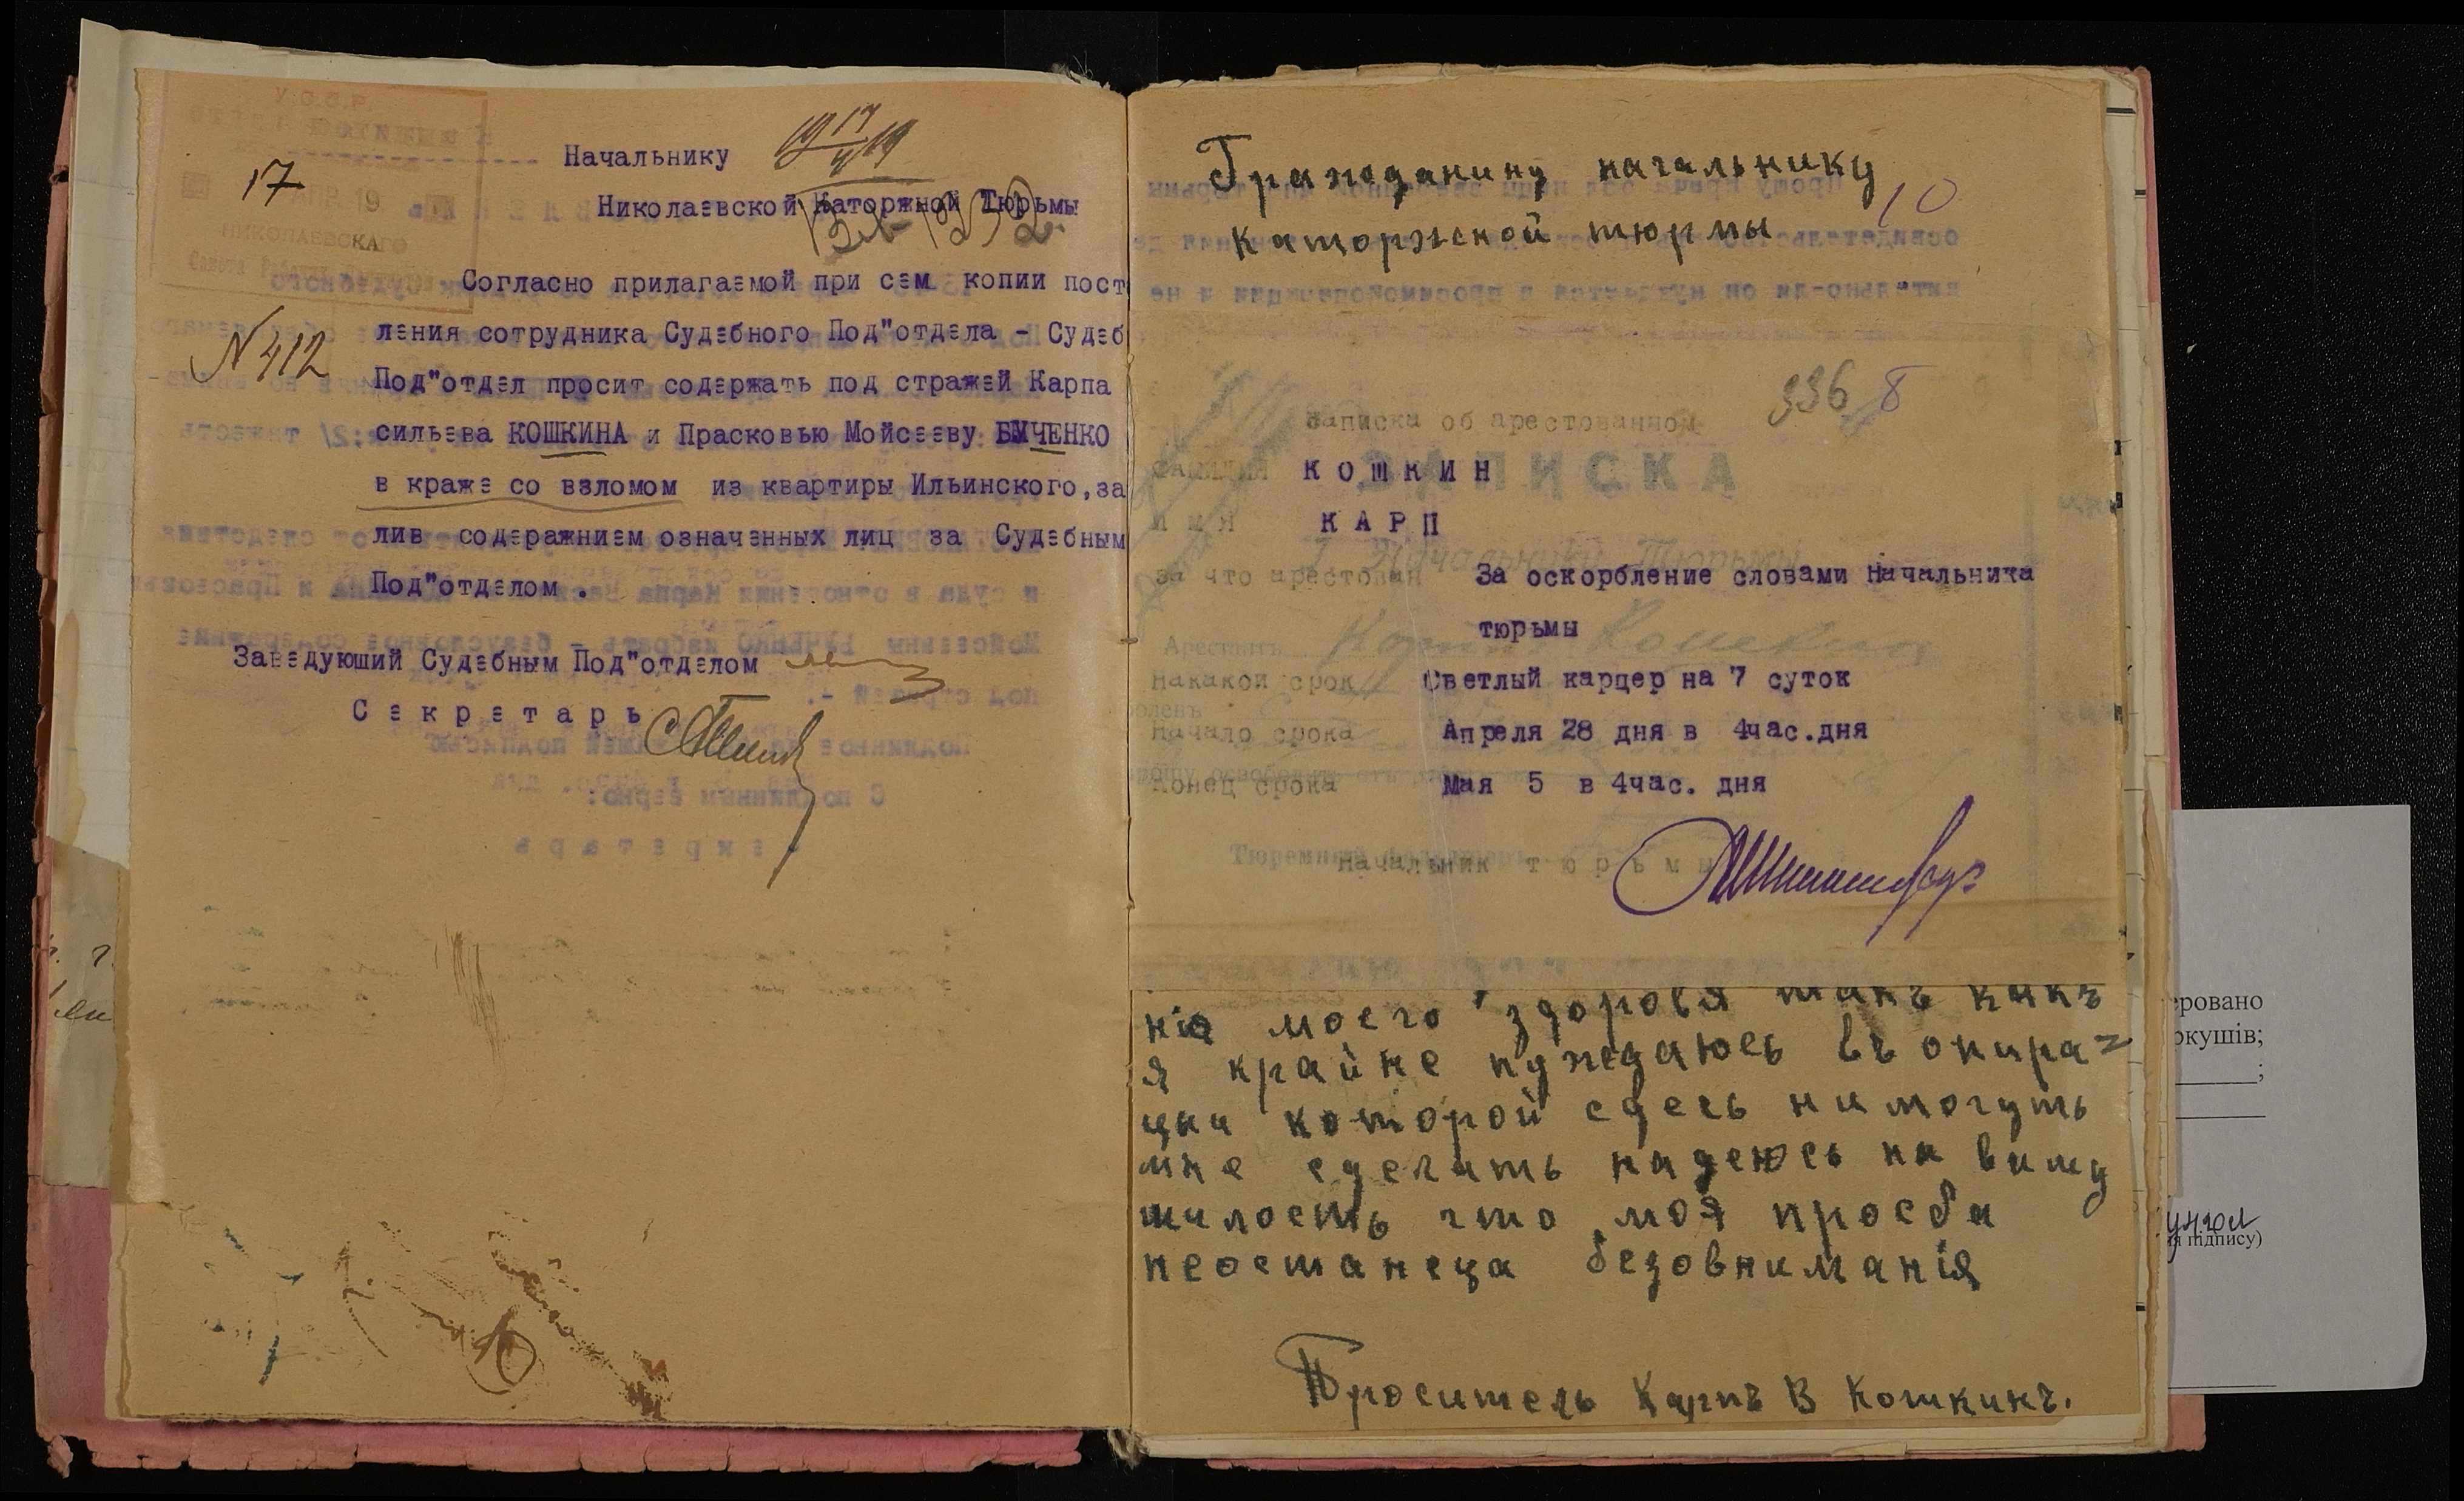 У.С.С.Р.
АПР 19
НИКОЛАЕВСКАГО
17
№ 412
Начальнику
19 17/4 19
Николаевской Каторжной Тюрьмы
Согласно прилагаемой при сем копии пост
ления сотрудника Судебного Под"отдела - Судеб
Под"отдел просит содержать под стражей Карпа
сильева КОШКИНА и Прасковью Мойсееву БУЧЕНКО
в краже со взломом из квартиры Ильинского, за
лив содеражнием означенных лиц за Судебным
Под"отделом .
Заведуюший Судебным Под"отделом
Секретарь
Гражданину начальнику
Каторжной тюрмы
10
336 8
Записка об арестованном
ЗАПИСКА
фамилия КОШКИН
имя КАРП
Начальнику Тюрьмы
за что арестован За оскорбление словами Начальника
тюрьмы
Арестант
Накакой срок Светлый карцер на 7 суток
Начало срока Апреля 28 дня в 4час.дня
Конец срока Мая 5 в 4час. дня
Начальник тюрьмы
нія моего здоровя такъ какъ
я крайне нуждаюсь въ опира=
цыи которой сдесь ни могуть
мне сделать надеюсь на вашу
милость что моя просба
неостанеца безовниманія
Проситель Карпъ В Кошкинъ.
еровано
ркушів;
підпису)